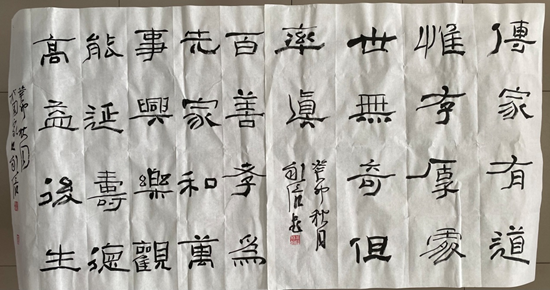 傳家有道
惟存厚處
世無奇但
率真
癸卯秋月
百善孝為
先家和萬
事興樂觀
能延壽德
高益後生
癸卯秋月